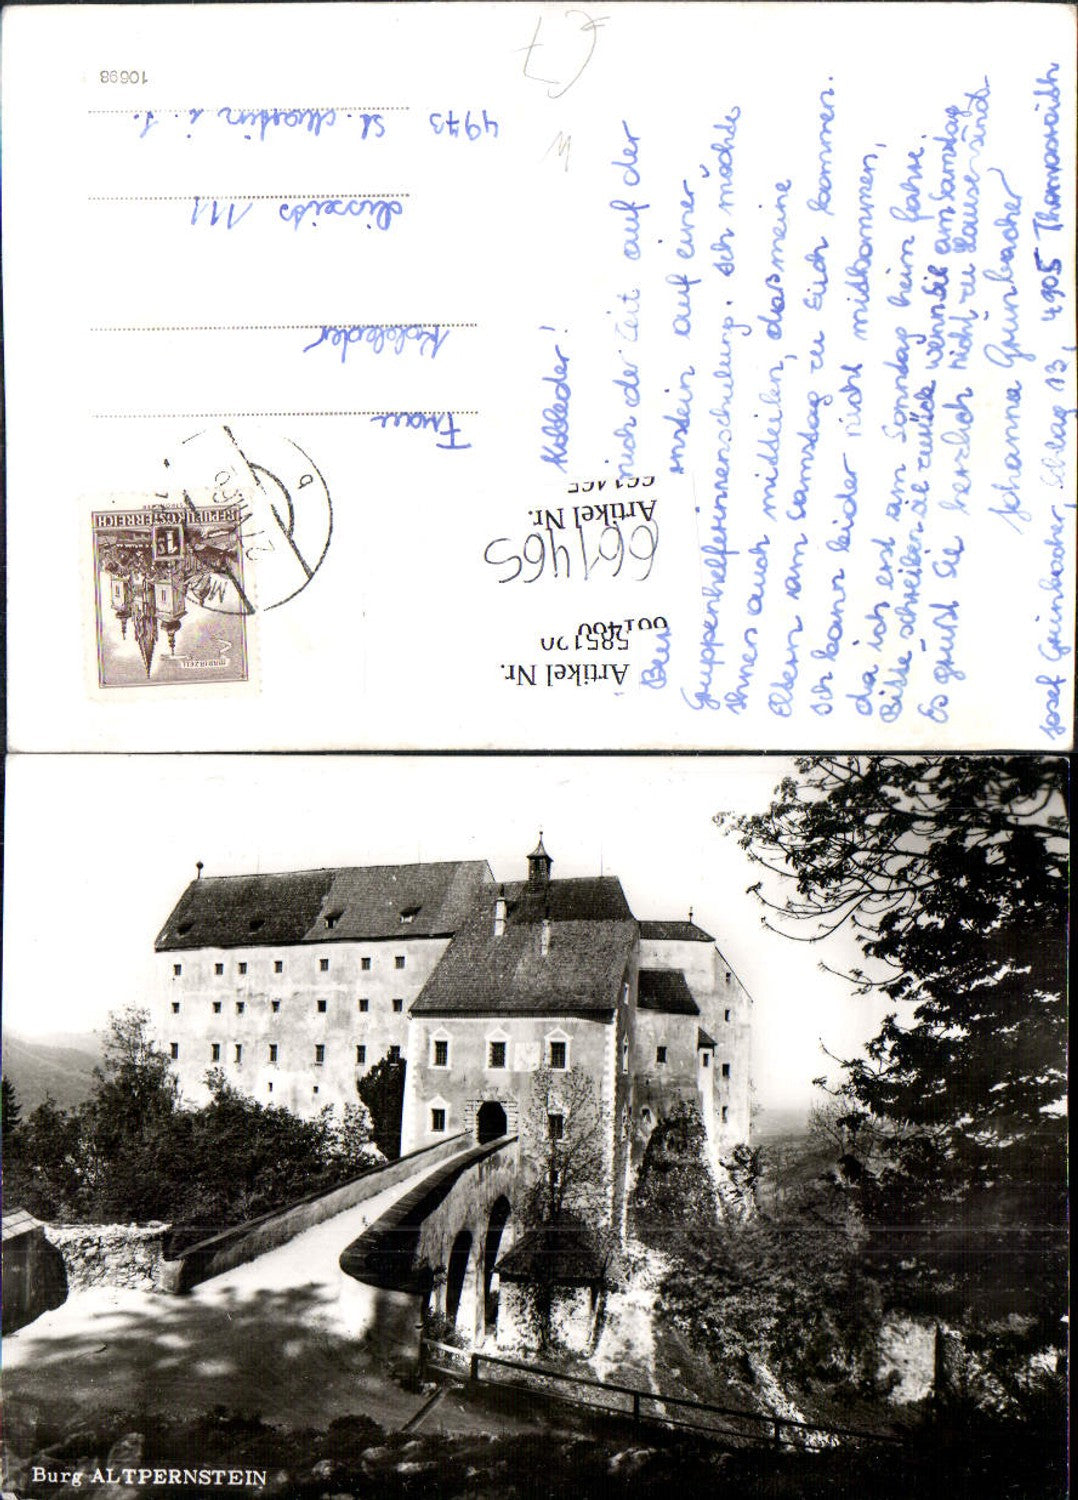 10698
4973 St. Martin i. I.
diseits 111
Kobleder
Frau
REPUBLIK ÖSTERREICH
1 S
MARIAZELL
Artikel Nr.
661465
Artikel Nr.
Kobleder!
mich der Zeit auf der
Bur nstein auf einer
Gruppenhelferinnenschulung. Ich möchte
Ihnen auch mitteilen, daß meine
Eltern am Samstag zu Euch kommen.
Ich kann leider nicht mitkommen,
da ich erst am Sonntag heim fahre.
Bitte schreiben sie zurück wenn Sie am Samstag
nicht zu Hause sind.
Es grüßt Sie herzlich
Johanna Grünbacher
Josef Grünbacher, Schlag 13, 4905 Thomasroith
Burg ALTPERNSTEIN